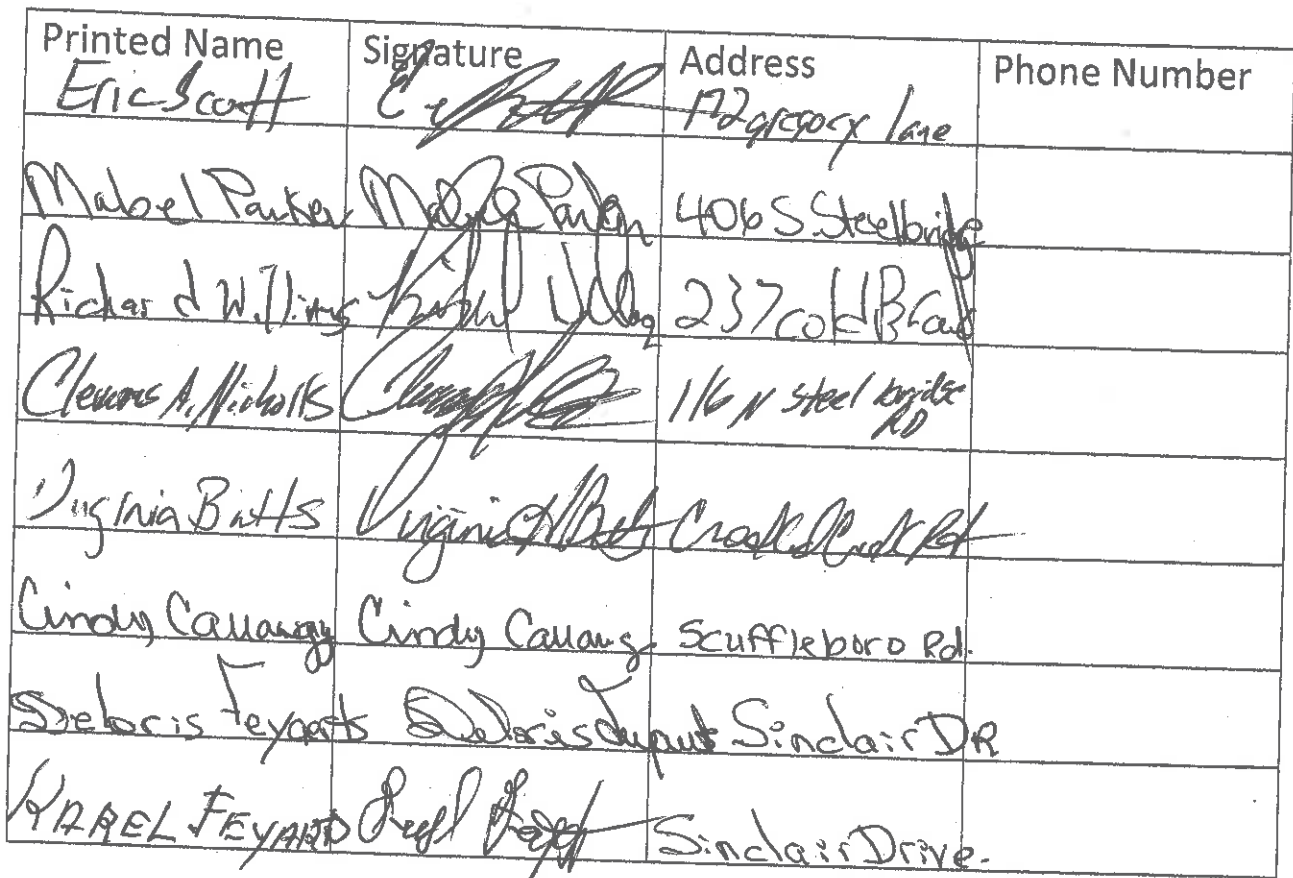 Printed Name Signature Address Phone Number
Eric Scott 172 gregory lane
Mabel Parker Mabel Parker 406 S. Steelbridge
Richard Williams 237 cold Branch
Clemons A. Nicholls 116 N steel bridge
RD
Virginia Butts Virginia Butts Crooked Creek Rd
Cindy Callaway Cindy Callaway Scuffleboro Rd.
Deloris Feyaerts Deloris Sinclair DR
KAREL Sinclair Drive.